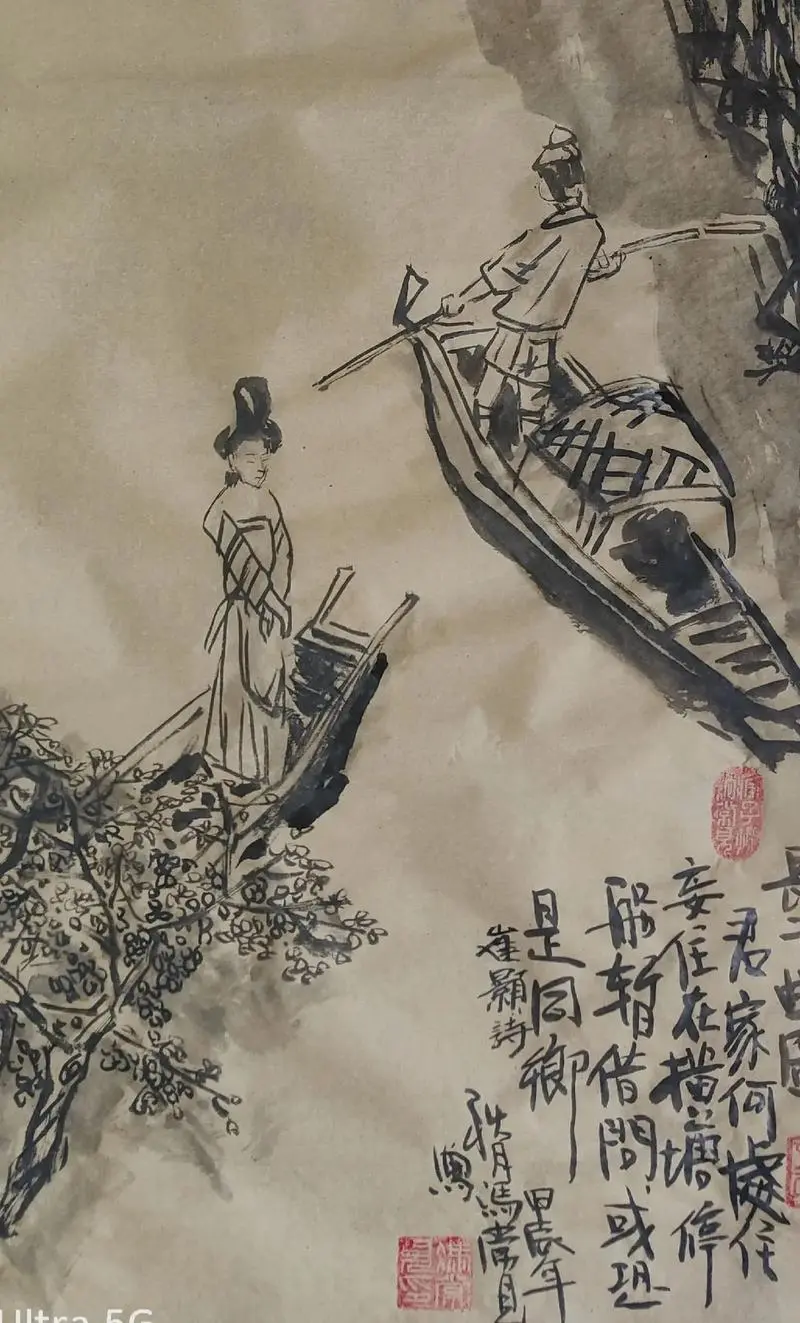 長干曲圖
君家何處住
妾住在橫塘停
船暫借問或恐
是同鄉
崔顥詩
甲辰年
秋月馮常見
寫
Ultra 5G